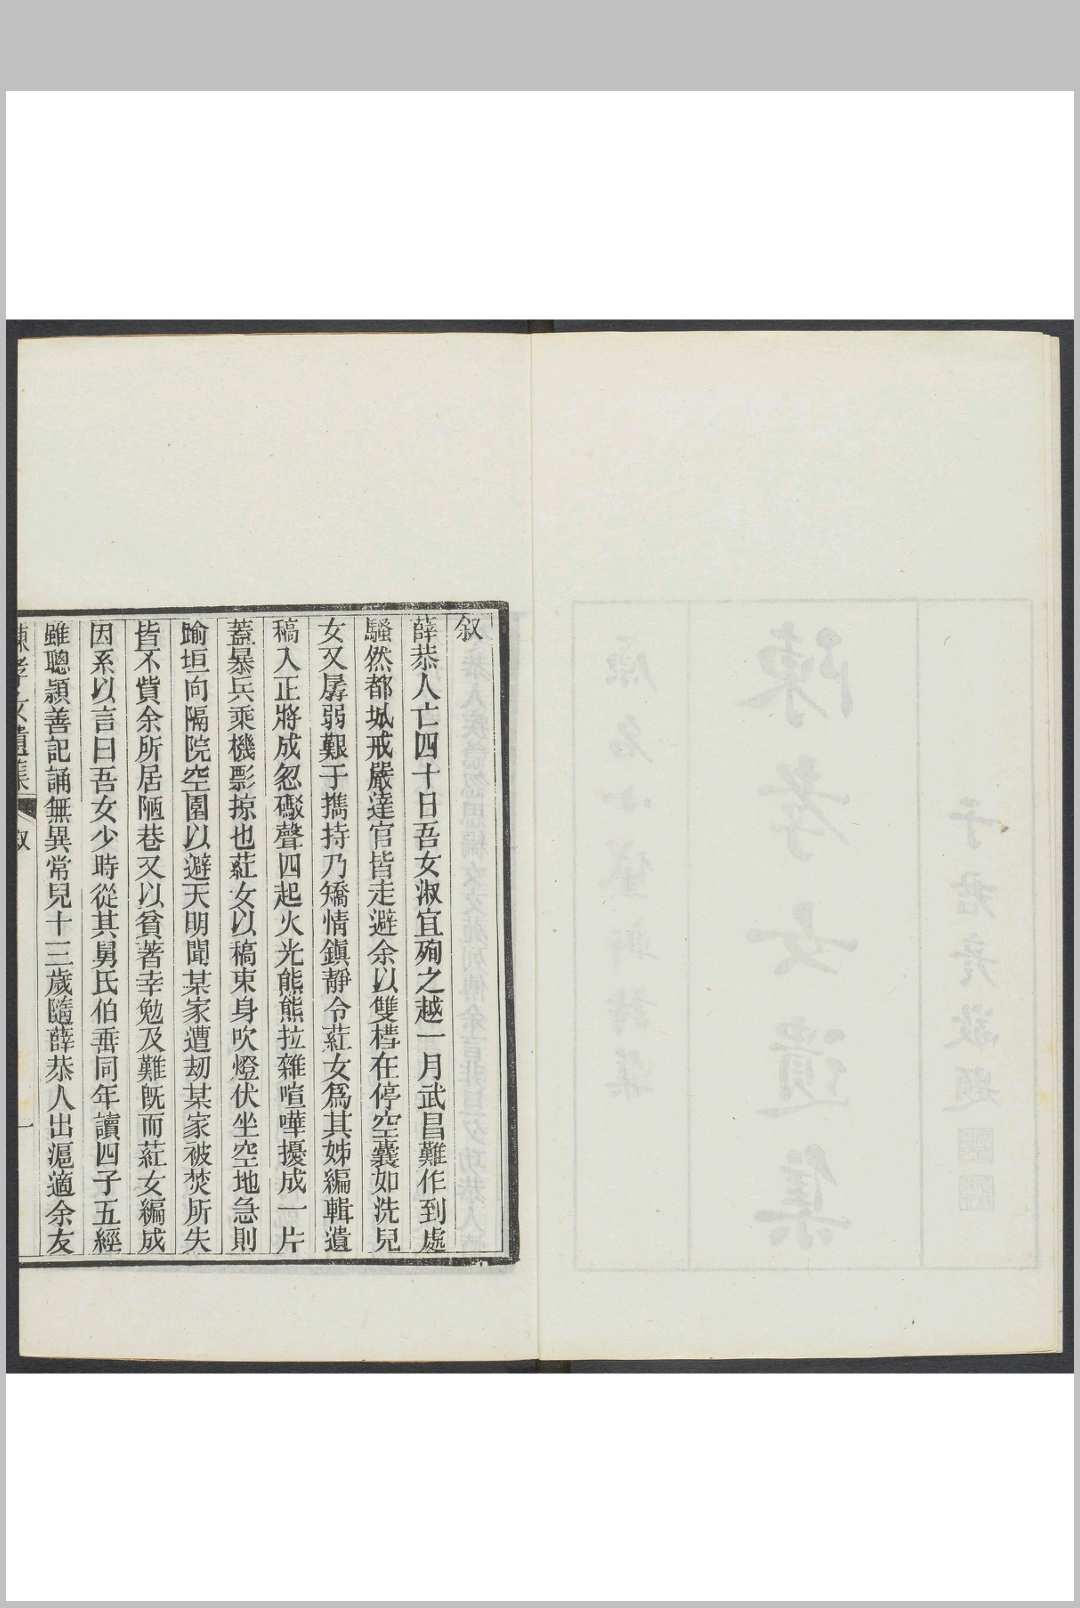 陳孝女遺集
叙
薛恭人亡四十日吾女淑宜殉之越一月武昌難作到處
騷然都城戒嚴達官皆走避余以雙槥在停空囊如洗兒
女又孱弱艱于擕持乃矯情鎮靜令葒女爲其姊編輯遺
稿入正將成忽礮聲四起火光熊熊拉雜喧嘩擾成一片
蓋暴兵乘機剽掠也葒女以稿束身吹燈伏坐空地急則
踰垣向隔院空園以避天明聞某家遭刼某家被焚所失
皆不貲余所居陋巷又以貧著幸勉及難旣而葒女編成
因系以言曰吾女少時從其舅氏伯垂同年讀四子五經
雖聰頴善記誦無異常兒十三歲隨薛恭人出滬適余友
陳孝女遺集 叙 一